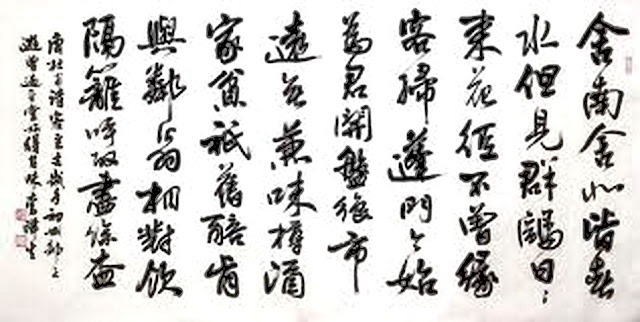 舍南舍北皆春
水但見群鷗日〻
來花徑不曾緣
客掃蓬門今始
為君開盤飧市
遠無兼味樽酒
家貧祇舊醅肯
與鄰翁相對飲
隔籬呼取盡餘盃
唐杜甫詩客至